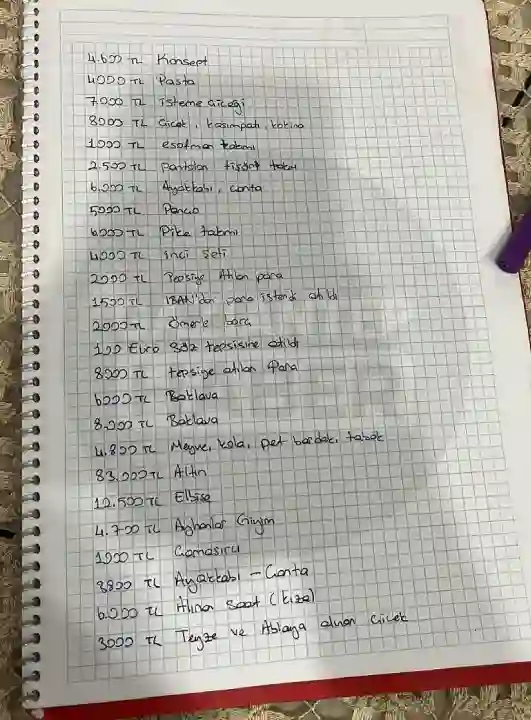 4.600 TL Konsept
4000 TL Pasta
7.000 TL isteme çiçeği
8000 TL Çiçek, kasımpatı, kokina
1.000 TL esofman takımı
2.500 TL pantolon tişört takım
6.000 TL Ayakkabı, çanta
5000 TL Panço
6000 TL Pike takımı
4000 TL inci seti
2000 TL Tepsiye Atılan para
1500 TL IBAN'dan para istendi atıldı
2000 TL Ömer'e para
100 Euro söz tepsisine atıldı
8000 TL tepsiye atılan Para
6000 TL Baklava
8.000 TL Baklava
4.800 TL Meyve, kola, pet bardak, tabak
83.000 TL Altın
12.500 TL Elbise
4.700 TL Ayhanlar Giyim
1000 TL Çamaşırı
8800 TL Ayakkabı - Çanta
6.000 TL Alınan Saat (kıza)
3000 TL Teyze ve Ablaya alınan Çiçek